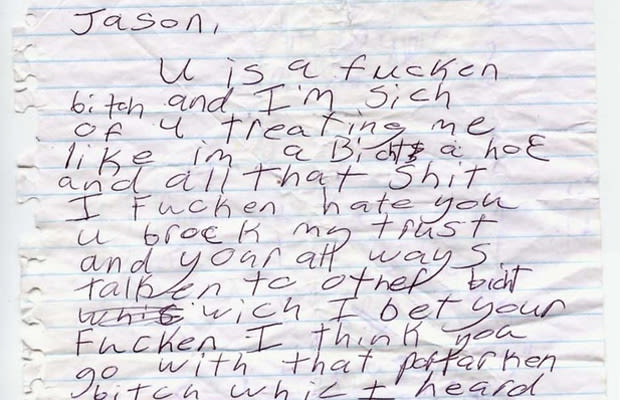 Jason,
U is a fucken
bitch and I'm sich
of u treating me
like im a Bicht a hoe
and all that Shit
I Fucken hate you
u broek my trust
and your all ways
talken to other bicht
wich I bet your
Fucken I think you
go with that
bitch whic I heard